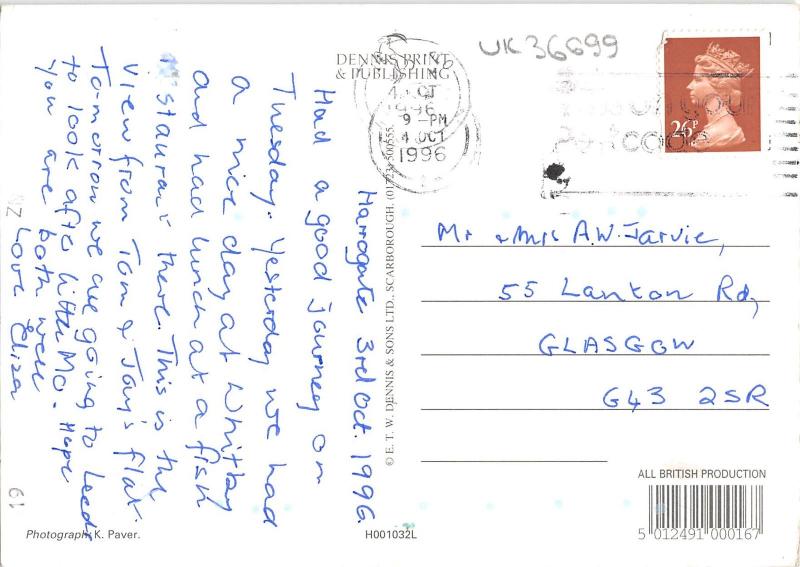 Harrogate 3rd Oct. 1996.
Had a good journey on
Tuesday. Yesterday we had
a nice day at Whitby
and had lunch at a fish
restaurant there. This is the
view from Tom & Jay's flat.
To-morrow we are going to Leeds
to look after little Mo. Hope
you are both well
Love Eliza
DENNIS PRINT
& PUBLISHING
© E. T. W. DENNIS & SONS LTD., SCARBOROUGH. (01723) 500555.
UK36699
OCT
1996
9 - PM
4 OCT
1996
26P
Mr & Mrs A.W. Jarvie,
55 Lanton Rd,
GLASGOW
G43 2SR
ALL BRITISH PRODUCTION
5 012491 000167
Photograph: K. Paver.
H001032L
61